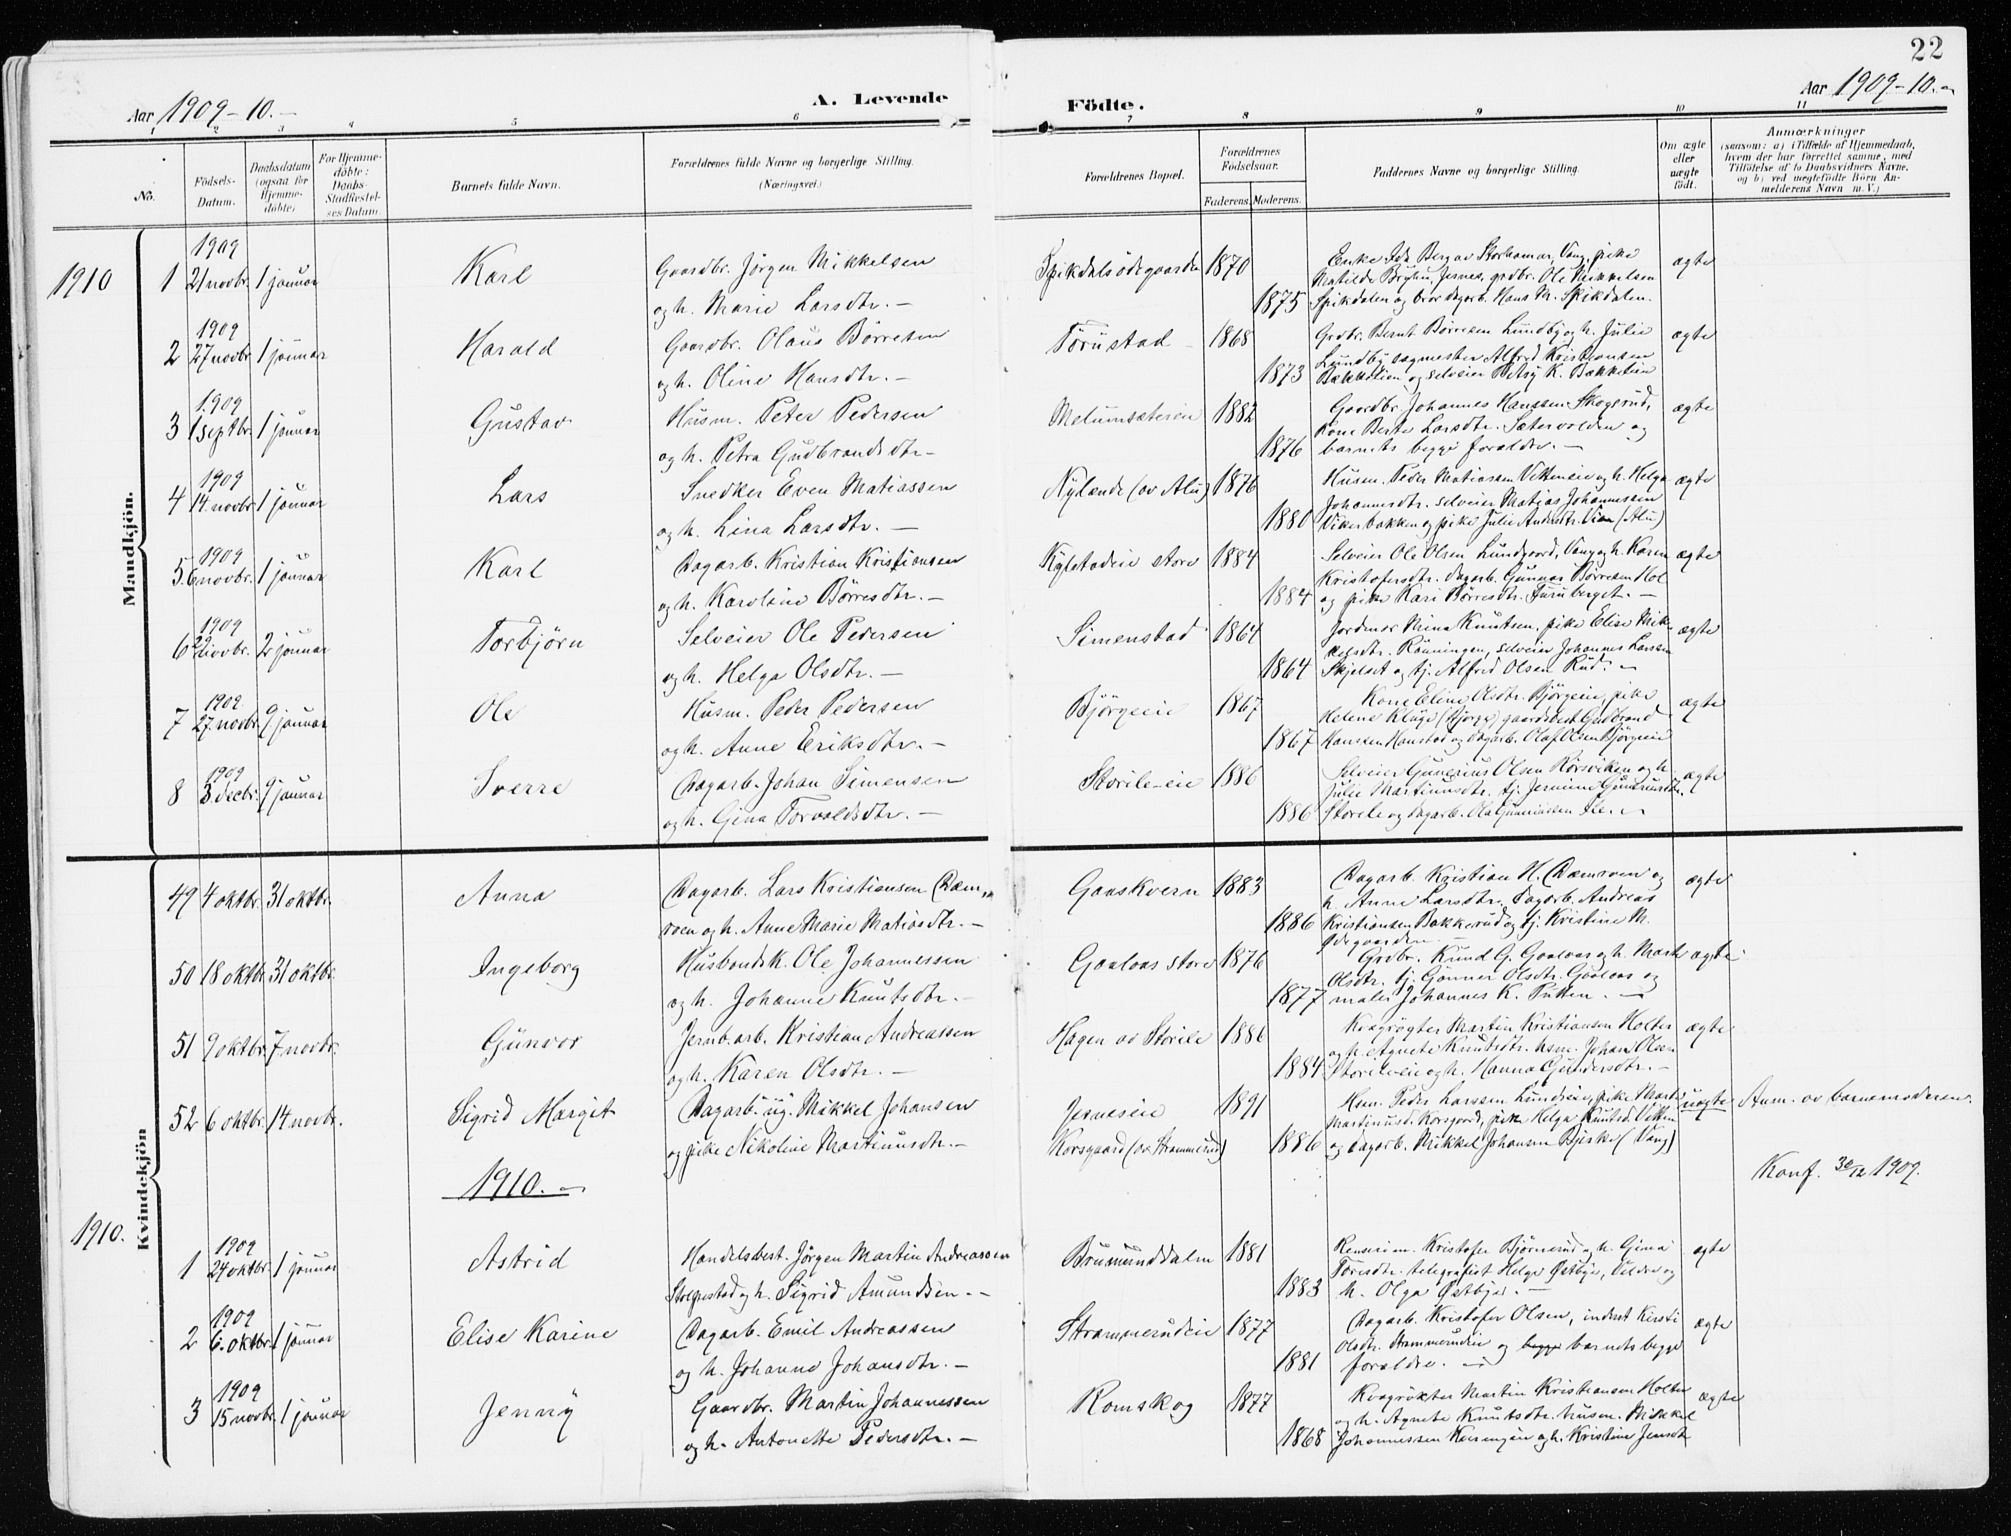 22
Aar 1909-10.-
A. Levende
Födte.
Aar 1909-10.-
1 2 3 4 5 6 7 8 9 10 11
No.
Födsels-
Datum.
Daabsdatum
(ogsaa for
Hjemme-
døbte)
For Hjemme-
døbte:
Daabs-
Stadfæstel-
ses Datum
Barnets fulde Navn.
Forældrenes fulde Navne og borgerlige Stilling.
(Næringsvei.)
Forældrenes Bopæl.
Forældrenes
Födselsaar.
Faderens. Moderens.
Faddernes Navne og borgerlige Stilling.
Om ægte
eller
uægte
födt.
Anmærkninger
(saasom: a) i Tilfælde af Hjemmedaab,
hvem der har forrettet samme, med
Tilföielse af to Daabsvidners Navne,
og b) ved uegtefödte Börn An-
melderens Navn m. V.)
Mandkjön.
1910
1909
1 21 novbr. 1 januar Karl Gaardbr. Jörgen Mikkelsen
og h. Marie Larsdtr. -
Spikdalsödegaarden 1870 1875
Enke Ida Berg av Storhamar, Vang, pike
Matilde Bryhn, Jesnes, grdbr. Ole Mikkelsen
Spikdalen og bror dagarb. Hans M. Spikdalen.
ægte
1909
2 27 novbr. 1 januar Harald Gaardbr. Olaus Börresen
og h. Oline Hansdtr. -
Törüstad 1868 1873
Grdbr. Bernt Börresen Lundby og h. Julie
Lundby sagmester Alfred Kristiansen
Bækkelien og selveier Betsy K. Bækkelien
ægte
1909
3 1 septbr. 1 januar Gustav Husm. Peter Pedersen
og h. Petra Gudbrandsdtr -
Melumsæteren 1882 1876
Gaardbr. Johannes Hanssen Skogsrud,
Kone Berte Larsdtr. Sætervolden og
barnets begge forældre. -
ægte
1909
4 14. novbr. 1 januar Lars Snedker Even Matiassen
og h. Lina Larsdtr. -
Nylænde (av Alu) 1876 1880
Husm. Peder Matiassen Vitteneie og h. Helga
Johannesdtr. selveier Matias Johannessen
Vikerbakken og pike Julie Andersdtr. Vien (Alu)
ægte
1909
5 6 novbr. 1 januar Karl Dagarb. Kristian Kristiansen
og h. Karoline Börresdtr. -
Kylstadeie store 1884 1884
Selveier Ole Olsen Lundgaard, Vang og h. Karen
Kristofersdtr. dagarb. Gunnar Börresen Hol
og pike Kari Börresdtr. Furuberget. -
ægte
1909
6 22 novbr. 2 januar Torbjörn Selveier Ole Pedersen
og h. Helga Olsdtr. -
Simenstad 1864 1864
Jordmor Mina Knutsen, pike Elise Mik-
kelsdtr. Rönningen, selveier Johannes Larsen
Skjelset og tj. Alfred Olsen Rud. -
ægte
1909
7 27. novbr. 9 januar Ole Husm. Peder Pedersen
og h. Anne Eriksdtr. -
Björgeeie 1867 1867
Kone Eline Olsdtr. Björgeeie, pike
Helene Kluge (Bjorge) gaardsbest. Gudbrand
Hanssen Hanstad og dagarb. Olaf Olsen Björgeeie
ægte
1909
8 3. decbr. 9 januar Sverre Dagarb. Johan Simensen
og h. Gina Torvaldsdtr. -
Storile-eie 1886 1886
Selveier Gunerius Olsen Rörsviken og h.
Julie Martinusdtr. tj. Jermine Guneriusdtr.
Storile og dagarb. Ole Guneriussen Ile. -
ægte
Kvindekjön
49 4 oktbr. 31 oktbr. Anna Dagarb. Lars Kristiansen Dæm-
roen og h. Anne Marie Matiasdtr. -
Gaaskvern 1883 1886
Dagarb. Kristian H. Dæmroen og
h. Anne Larsdtr. Dagarb. Andreas
Kristiansen Bakkerud og tj. Kristine M.
Ödegaarden. -
ægte
50 18 oktbr 31 oktbr. Ingeborg Husbondsk. Ole Johannessen
og h. Johanne Knutsdtr. -
Gaalaas store 1876 1877
Grdbr. Knud G. Gaalaas og h. Marte
Olsdtr. tj. Gunner Olsdtr. Gaalaas og
maler Johannes K. Putten. -
ægte
51 9 oktbr. 7 novbr. Günvor Jernb.arb. Kristian Andreassen
og h. Karen Olsdtr. -
Hagen av Storile 1886 1884
Kvægrögter Martin Kristiansen Holter
og h. Agnete Knutsdtr. husm. Johan Olsen
Storileeie og h. Hanna Gundersdtr. -
ægte
52 6 oktbr. 14 novbr. Sigrid Margit Dagarb. ug. Mikkel Johansen
og pike Nikoline Martinusdtr. -
Jesneseie
Korsgaard (av Strammerud) 1891 1886
Hsm. Peder Larssen Lundseie, pike Marte
Martinusd. Korsgard, pike Helga Knutsd. Vitten
og dagarb. Mikkel Johansen Bjeske (Vang)
uægte
Anm. av barnemoderen.
Konf. 30/12 1909.
1910. -
1910.
1909
1 24 oktbr. 1 januar Astrid Handelsbest. Jörgen Martin Andreassen
Stolpestad og h. Sigrid Amundsen. -
Brumunddalen 1881 1883
Kristofer Björnerud og h. Gina
Toresdtr. telegrafist Helge Østbye, Veldre og
h. Olga Østbye. -
ægte
1909
2 6. oktbr. 1 januar Elise Karine Dagarb. Emil Andreassen
og h. Johanne Johansdtr. -
Strammerudeie 1877 1881
Dagarb. Kristofer Olsen, inderst Kersti
Olsdtr. Strammerudeie og begge barnets begge
forældre. -
ægte
1909
3 15 novbr. 1 januar Jenny Gaardbr. Martin Johannessen
og h. Antonette Pedersdtr. -
Romskog 1877 1868
Kvægrökter Martin Kristiansen Holter
og h. Agnete Knutsdtr. husm. Mikkel
Johannessen Kvernengen og h. Kristine Jensdtr
ægte